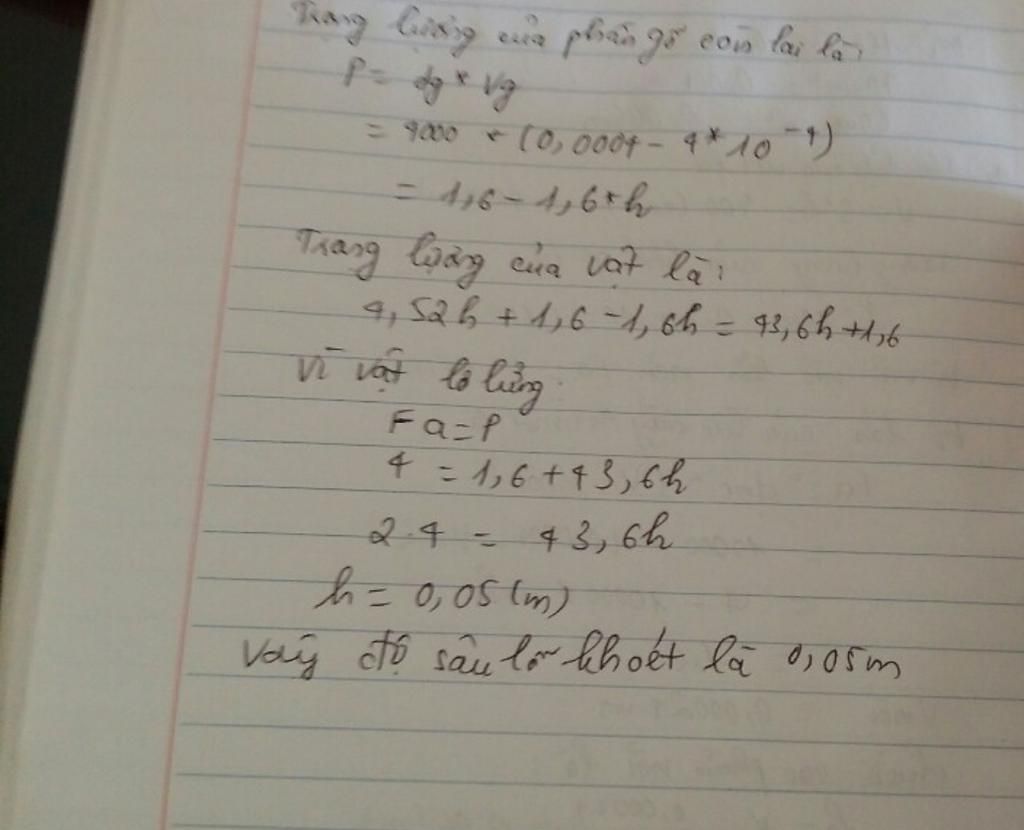 Trọng lượng của phần gỗ còn lại là:
P = dg * Vg
= 4000 * (0,0004 - 4 * 10^-4)
= 1,6 - 1,6 * h
Trọng lượng của vật là:
4,52h + 1,6 - 1,6h = 43,6h + 1,6
Vì vật lơ lửng
Fa = P
4 = 1,6 + 43,6h
2.4 = 43,6h
h = 0,05 (m)
Vậy độ sâu lỗ khoét là 0,05m